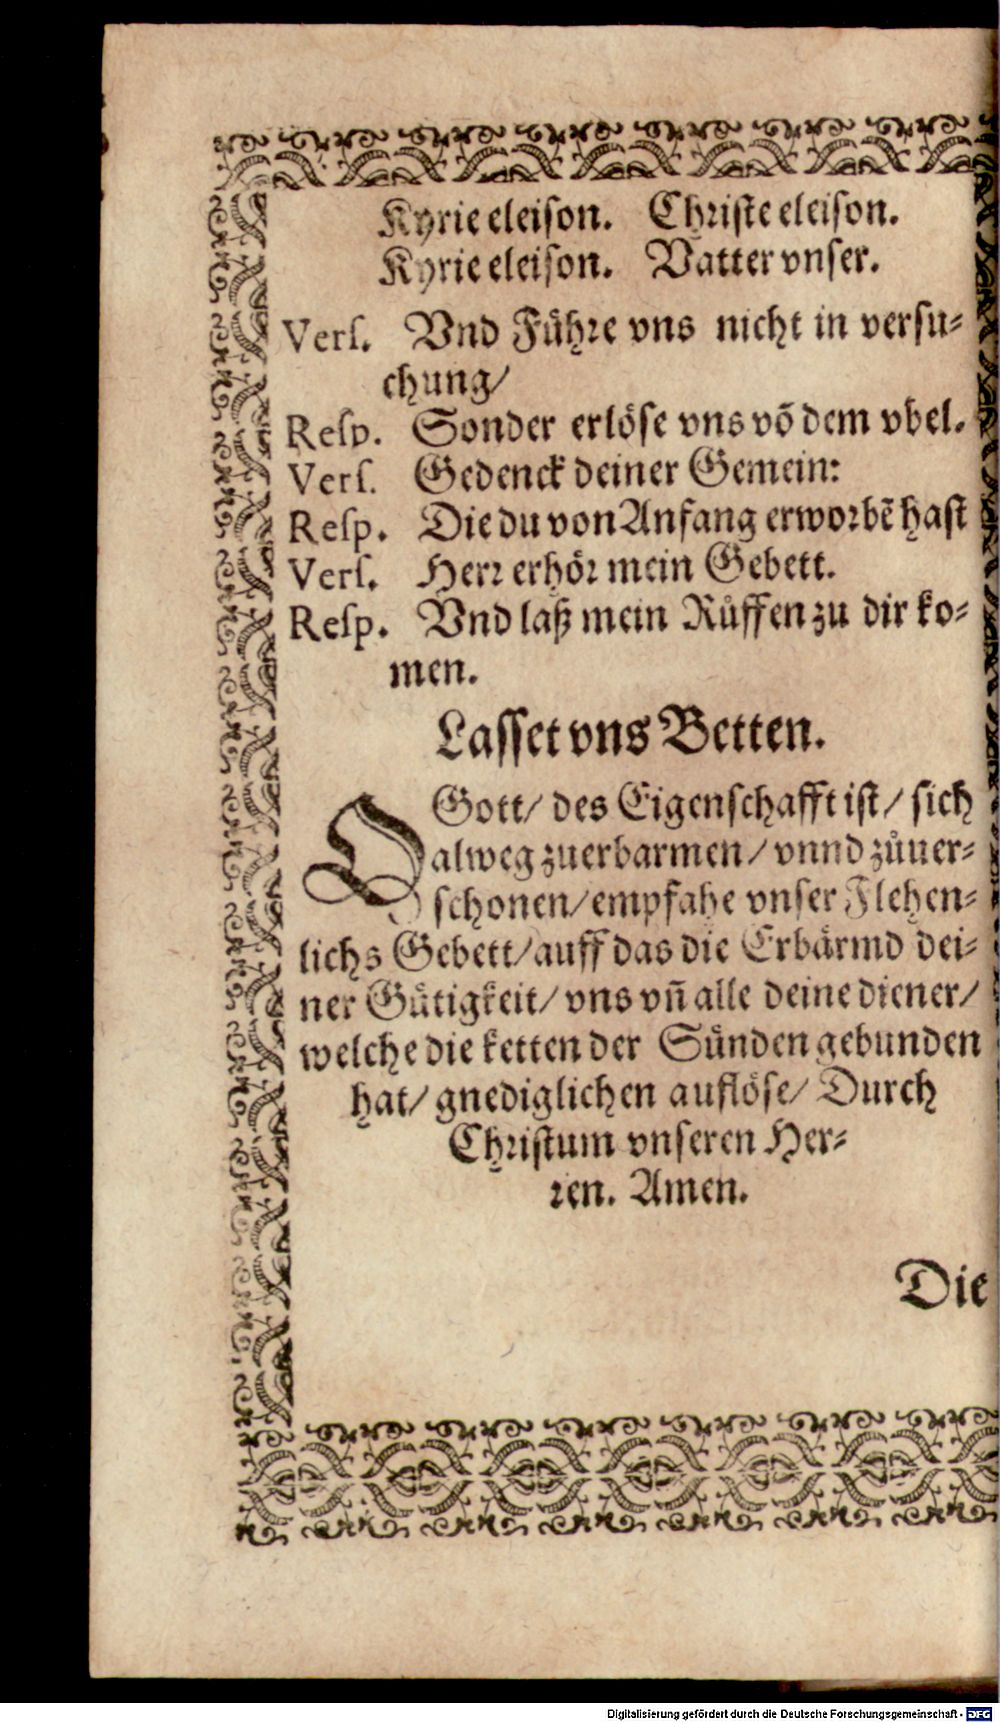 Kyrie eleison. Christe eleison.
Kyrie eleison. Vatter vnser.
Vers. Vnd Führe vns nicht in versu⸗
chung/
Resp. Sonder erlöse vns võ dem vbel.
Vers. Gedenck deiner Gemein:
Resp. Die du von Anfang erworbẽ hast
Vers. Herr erhör mein Gebett.
Resp. Vnd laß mein Růffen zu dir ko⸗
men.
Lasset vns Betten.
O Gott/ des Eigenschafft ist/ sich
alweg zuerbarmen/ vnnd zůuer⸗
schonen/ empfahe vnser Flehen⸗
lichs Gebett/ auff das die Erbärmd dei⸗
ner Gütigkeit/ vns vñ alle deine diener/
welche die ketten der Sünden gebunden
hat/ gnediglichen auflöse/ Durch
Christum vnseren Her⸗
ren. Amen.
Die
Digitalisierung gefördert durch die Deutsche Forschungsgemeinschaft - DFG